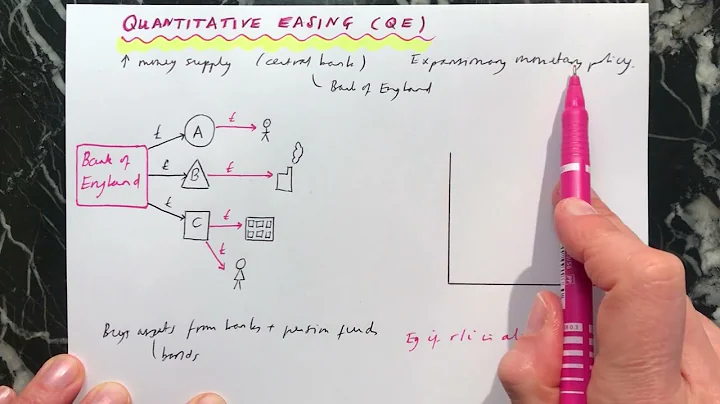 QUANTITATIVE EASING (QE)
↑ money supply (central bank) Expansionary monetary policy.
Bank of England
£ A £
Bank of England
£ B £
£ C £
£
Buys assets from banks + pension funds
bonds
Eg if r/i is al